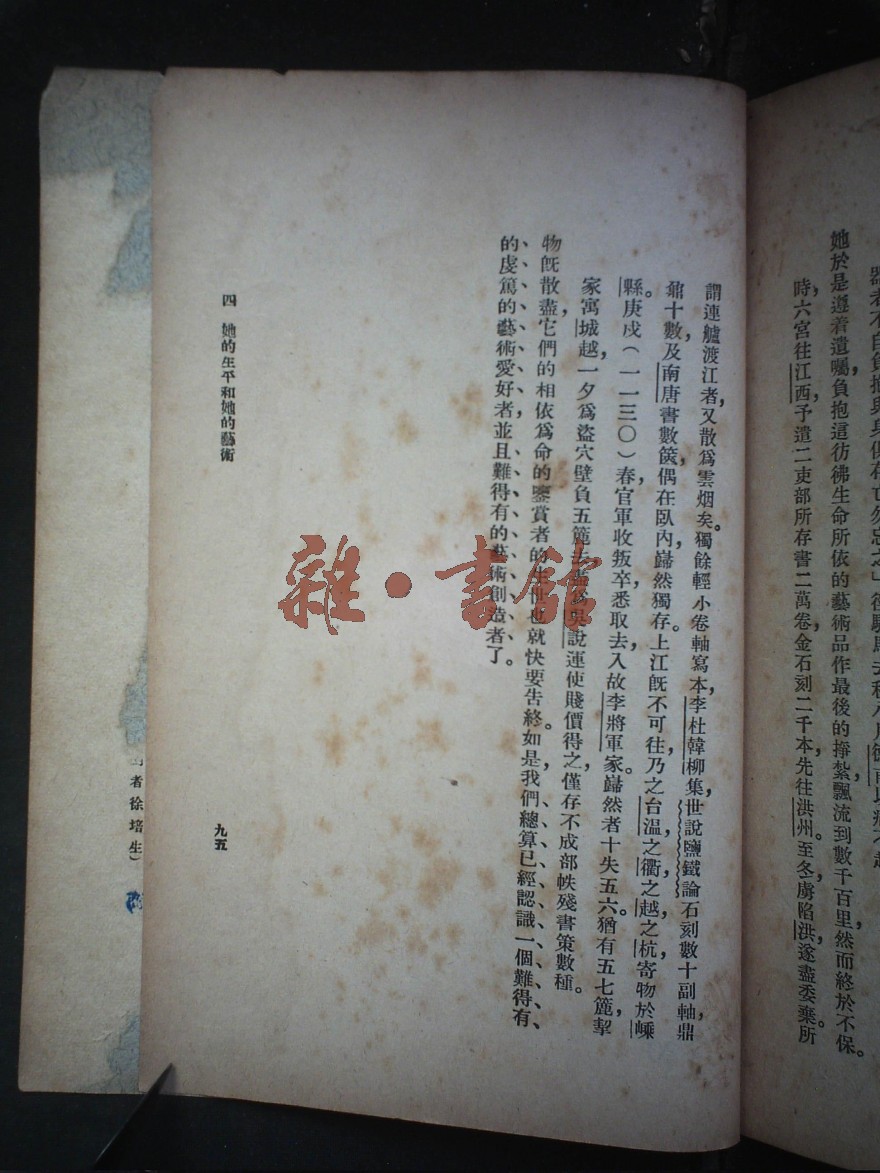 她於是遵着遺囑，負抱這彷彿生命所依的藝術品作最後的掙紮，飄流到數千百里，然而終於不保。
時六宮往江西，予遣二吏部所存書二萬卷，金石刻二千本先往洪州。至冬虜陷洪，遂盡委棄。所
謂連艫渡江者，又散爲雲烟矣。獨餘輕小卷軸，寫本李杜韓柳集，世說，鹽鐵論，石刻數十副軸，鼎
鼐十數，及南唐書數篋，偶在臥內，巋然獨存。上江旣不可往，乃之台溫，之衢，之越，之杭，寄物於嵊
縣。庚戍（一一三〇）春，官軍收叛卒，悉取去，入故李將軍家。巋然者十失五六。猶有五七簏，挈
家寓城越，一夕爲盜穴壁負五簏去，盡爲吳說運使賤價得之，僅存不成部帙殘書策數種。
物旣散盡，它們的相依爲命的鑒賞者的生世也就快要吿終。如是，我們總算已經認識一個難得有
的虔篤的藝術愛好者，並且難得有的藝術創造者了。
四 她的生平和她的藝術
九五
者徐培生）
雜·書館